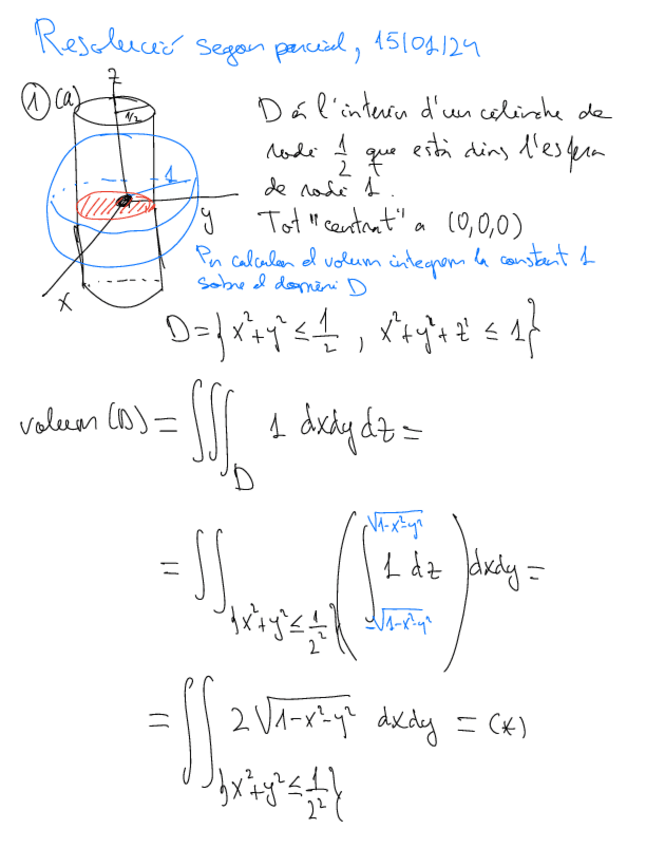 Resolució segon parcial, 15/01/24
① (a)
z
1/2
1
y
x
D és l'interior d'un cilindre de
radi 1/2 que està dins l'esfera
de radi 1.
Tot "centrat" a (0,0,0)
Per calcular el volum integrem la constant 1
sobre el domini D
D = { x² + y² ≤ 1/2 , x² + y² + z² ≤ 1 }
volum (D) = ∭_D 1 dxdydz =
= ∬_{x²+y² ≤ 1/2²} ( ∫_{-√(1-x²-y²)}^{√(1-x²-y²)} 1 dz ) dxdy =
= ∬_{x²+y² ≤ 1/2²} 2√(1-x²-y²) dxdy = (*)